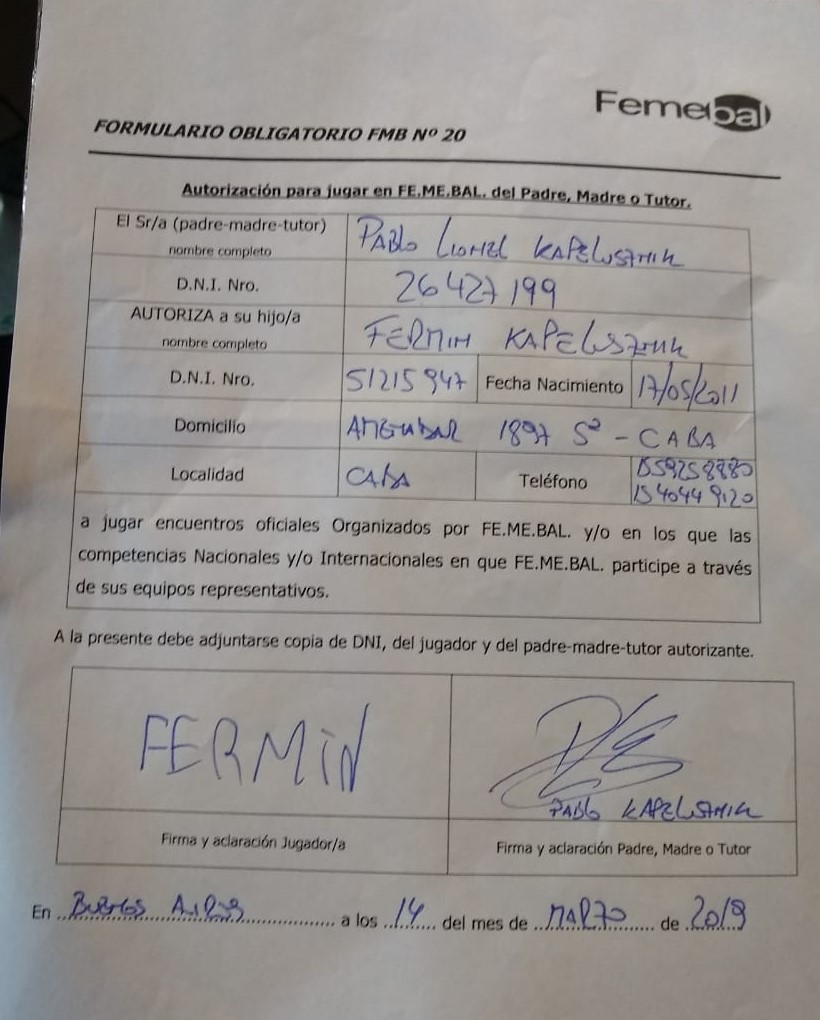 Femebal
FORMULARIO OBLIGATORIO FMB Nº 20
Autorización para jugar en FE.ME.BAL. del Padre, Madre o Tutor.
El Sr/a (padre-madre-tutor) nombre completo PABLO LIONEL KAPELUSZNIK
D.N.I. Nro. 26427199
AUTORIZA a su hijo/a nombre completo FERMIN KAPELUSZNIK
D.N.I. Nro. 51215947 Fecha Nacimiento 17/05/2011
Domicilio 1897 5º - CABA
Localidad CABA Teléfono 1559258880
1540449120
a jugar encuentros oficiales Organizados por FE.ME.BAL. y/o en los que las
competencias Nacionales y/o Internacionales en que FE.ME.BAL. participe a través
de sus equipos representativos.
A la presente debe adjuntarse copia de DNI, del jugador y del padre-madre-tutor autorizante.
FERMIN
PABLO KAPELUSZNIK
Firma y aclaración Jugador/a Firma y aclaración Padre, Madre o Tutor
En BUENOS AIRES a los 14 del mes de MARZO de 2019